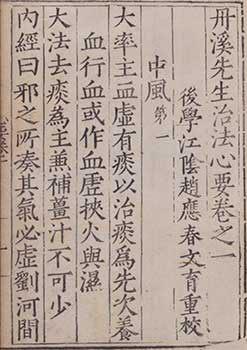 丹溪先生治法心要卷之一
後學江陰趙應春文育重校
中風第一
大率主血虛有痰以治痰爲先次養
血行血或作血虛挾火與濕
大法去痰爲主兼補薑汁不可少
內經曰邪之所凑其氣必虛劉河間